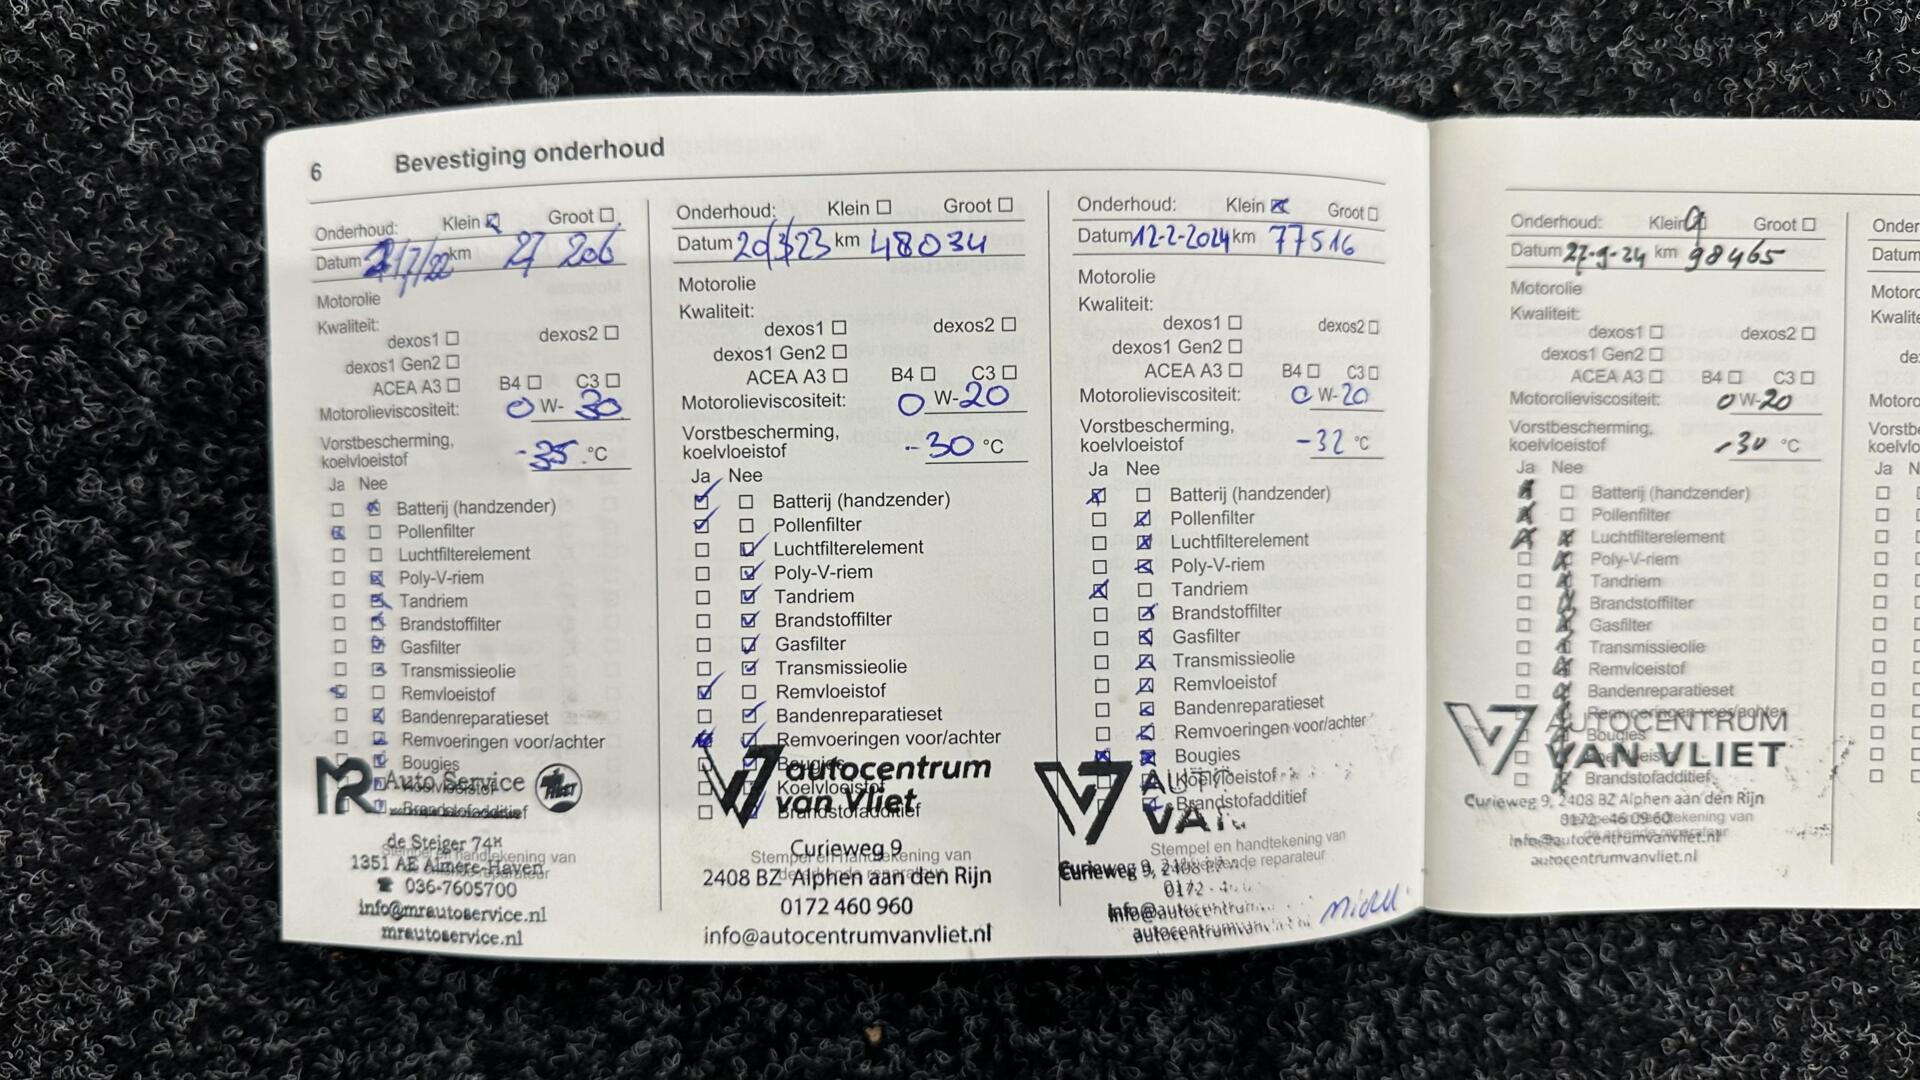 6 Bevestiging onderhoud
Onderhoud: Klein Groot
Datum /7/22 km 27 206
Motorolie
Kwaliteit:
dexos1 dexos2
dexos1 Gen2
ACEA A3 B4 C3
Motorolieviscositeit: 0 W- 30
Vorstbescherming,
koelvloeistof -35 °C
Ja Nee
Batterij (handzender)
Pollenfilter
Luchtfilterelement
Poly-V-riem
Tandriem
Brandstoffilter
Gasfilter
Transmissieolie
Remvloeistof
Bandenreparatieset
Remvoeringen voor/achter
Bougies
Koelvloeistof
Brandstofadditief
MR Auto Service
de Steiger 74H
Stempel en handtekening van
1351 AE Almere-Haven
036-7605700
info@mrautoservice.nl
mrautoservice.nl
Onderhoud: Klein Groot
Datum 20/3/23 km 48034
Motorolie
Kwaliteit:
dexos1 dexos2
dexos1 Gen2
ACEA A3 B4 C3
Motorolieviscositeit: 0 W-20
Vorstbescherming,
koelvloeistof -30 °C
Ja Nee
Batterij (handzender)
Pollenfilter
Luchtfilterelement
Poly-V-riem
Tandriem
Brandstoffilter
Gasfilter
Transmissieolie
Remvloeistof
Bandenreparatieset
Remvoeringen voor/achter
Bougies
Koelvloeistof
Brandstofadditief
autocentrum
van Vliet
Curieweg 9
Stempel en handtekening van
2408 BZ Alphen aan den Rijn
0172 460 960
info@autocentrumvanvliet.nl
Onderhoud: Klein Groot
Datum 12-2-2024 km 77516
Motorolie
Kwaliteit:
dexos1 dexos2
dexos1 Gen2
ACEA A3 B4 C3
Motorolieviscositeit: 0 W-20
Vorstbescherming,
koelvloeistof -32 °C
Ja Nee
Batterij (handzender)
Pollenfilter
Luchtfilterelement
Poly-V-riem
Tandriem
Brandstoffilter
Gasfilter
Transmissieolie
Remvloeistof
Bandenreparatieset
Remvoeringen voor/achter
Bougies
Koelvloeistof
Brandstofadditief
VAN
Stempel en handtekening van
Curieweg 9, 2408 reparateur
0172
info@autocentrum
autocentrumvan
Onderhoud: Klein Groot
Datum 27-9-24 km 98465
Motorolie
Kwaliteit:
dexos1 dexos2
dexos1 Gen2
ACEA A3 B4 C3
Motorolieviscositeit: 0 W-20
Vorstbescherming,
koelvloeistof -30 °C
Ja Nee
Batterij (handzender)
Pollenfilter
Luchtfilterelement
Poly-V-riem
Tandriem
Brandstoffilter
Gasfilter
Transmissieolie
Remvloeistof
Bandenreparatieset
Remvoeringen voor/achter
AUTOCENTRUM
Bougies
VAN VLIET
Brandstofadditief
Curieweg 9, 2408 BZ Alphen aan den Rijn
0172-460960
info@autocentrumvanvliet.nl
autocentrumvanvliet.nl
Onder
Datum
Motoro
Kwalite
de
Motoro
Vorstb
koelvlo
Ja N